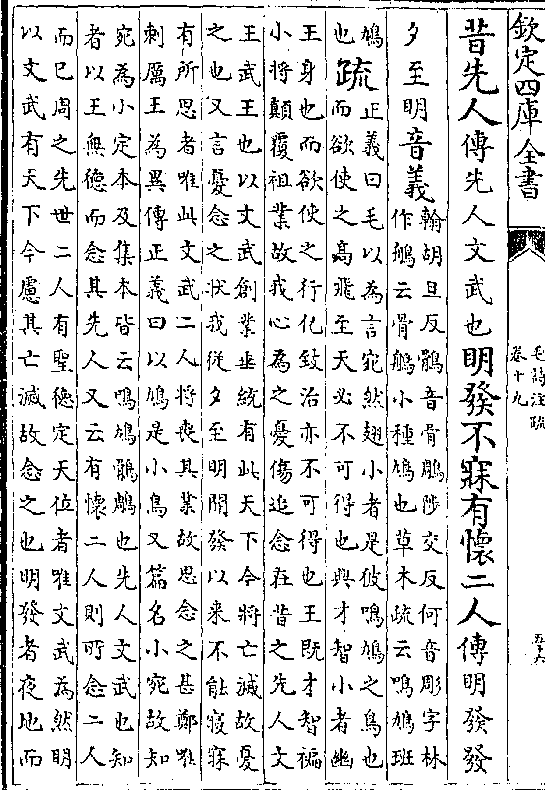 欽定四庫全書
毛詩注疏
卷十九
五十六
昔先人傳先人文武也明發不寐有懷二人傳明發發
夕至明音義
翰胡旦反鶻音骨鵰陟交反何音彫字林
作鵃云骨鵃小種鳩也草木疏云鳴鳩班
鳩
也
疏
正義曰毛以為言宛然翅小者是彼鳴鳩之鳥也
而欲使之高飛至天必不可得也興才智小者幽
王身也而欲使之行化致治亦不可得也王既才智褊
小將顛覆祖業故我心為之憂傷追念在昔之先人文
王武王也以文武創業垂統有此天下今將亡滅故憂
之也又言憂念之狀我從夕至明開發以來不能寢寐
有所思者唯此文武二人將喪其業故思念之甚鄭唯
刺厲王為異傳正義曰以鳩是小鳥又篇名小宛故知
宛為小定本及集本皆云鳴鳩鶻鵰也先人文武也知
者以王無德而念其先人又云有懷二人則所念二人
而已周之先世二人有聖德定天位者唯文武為然明
以文武有天下今慮其亡滅故念之也明發者夜地而